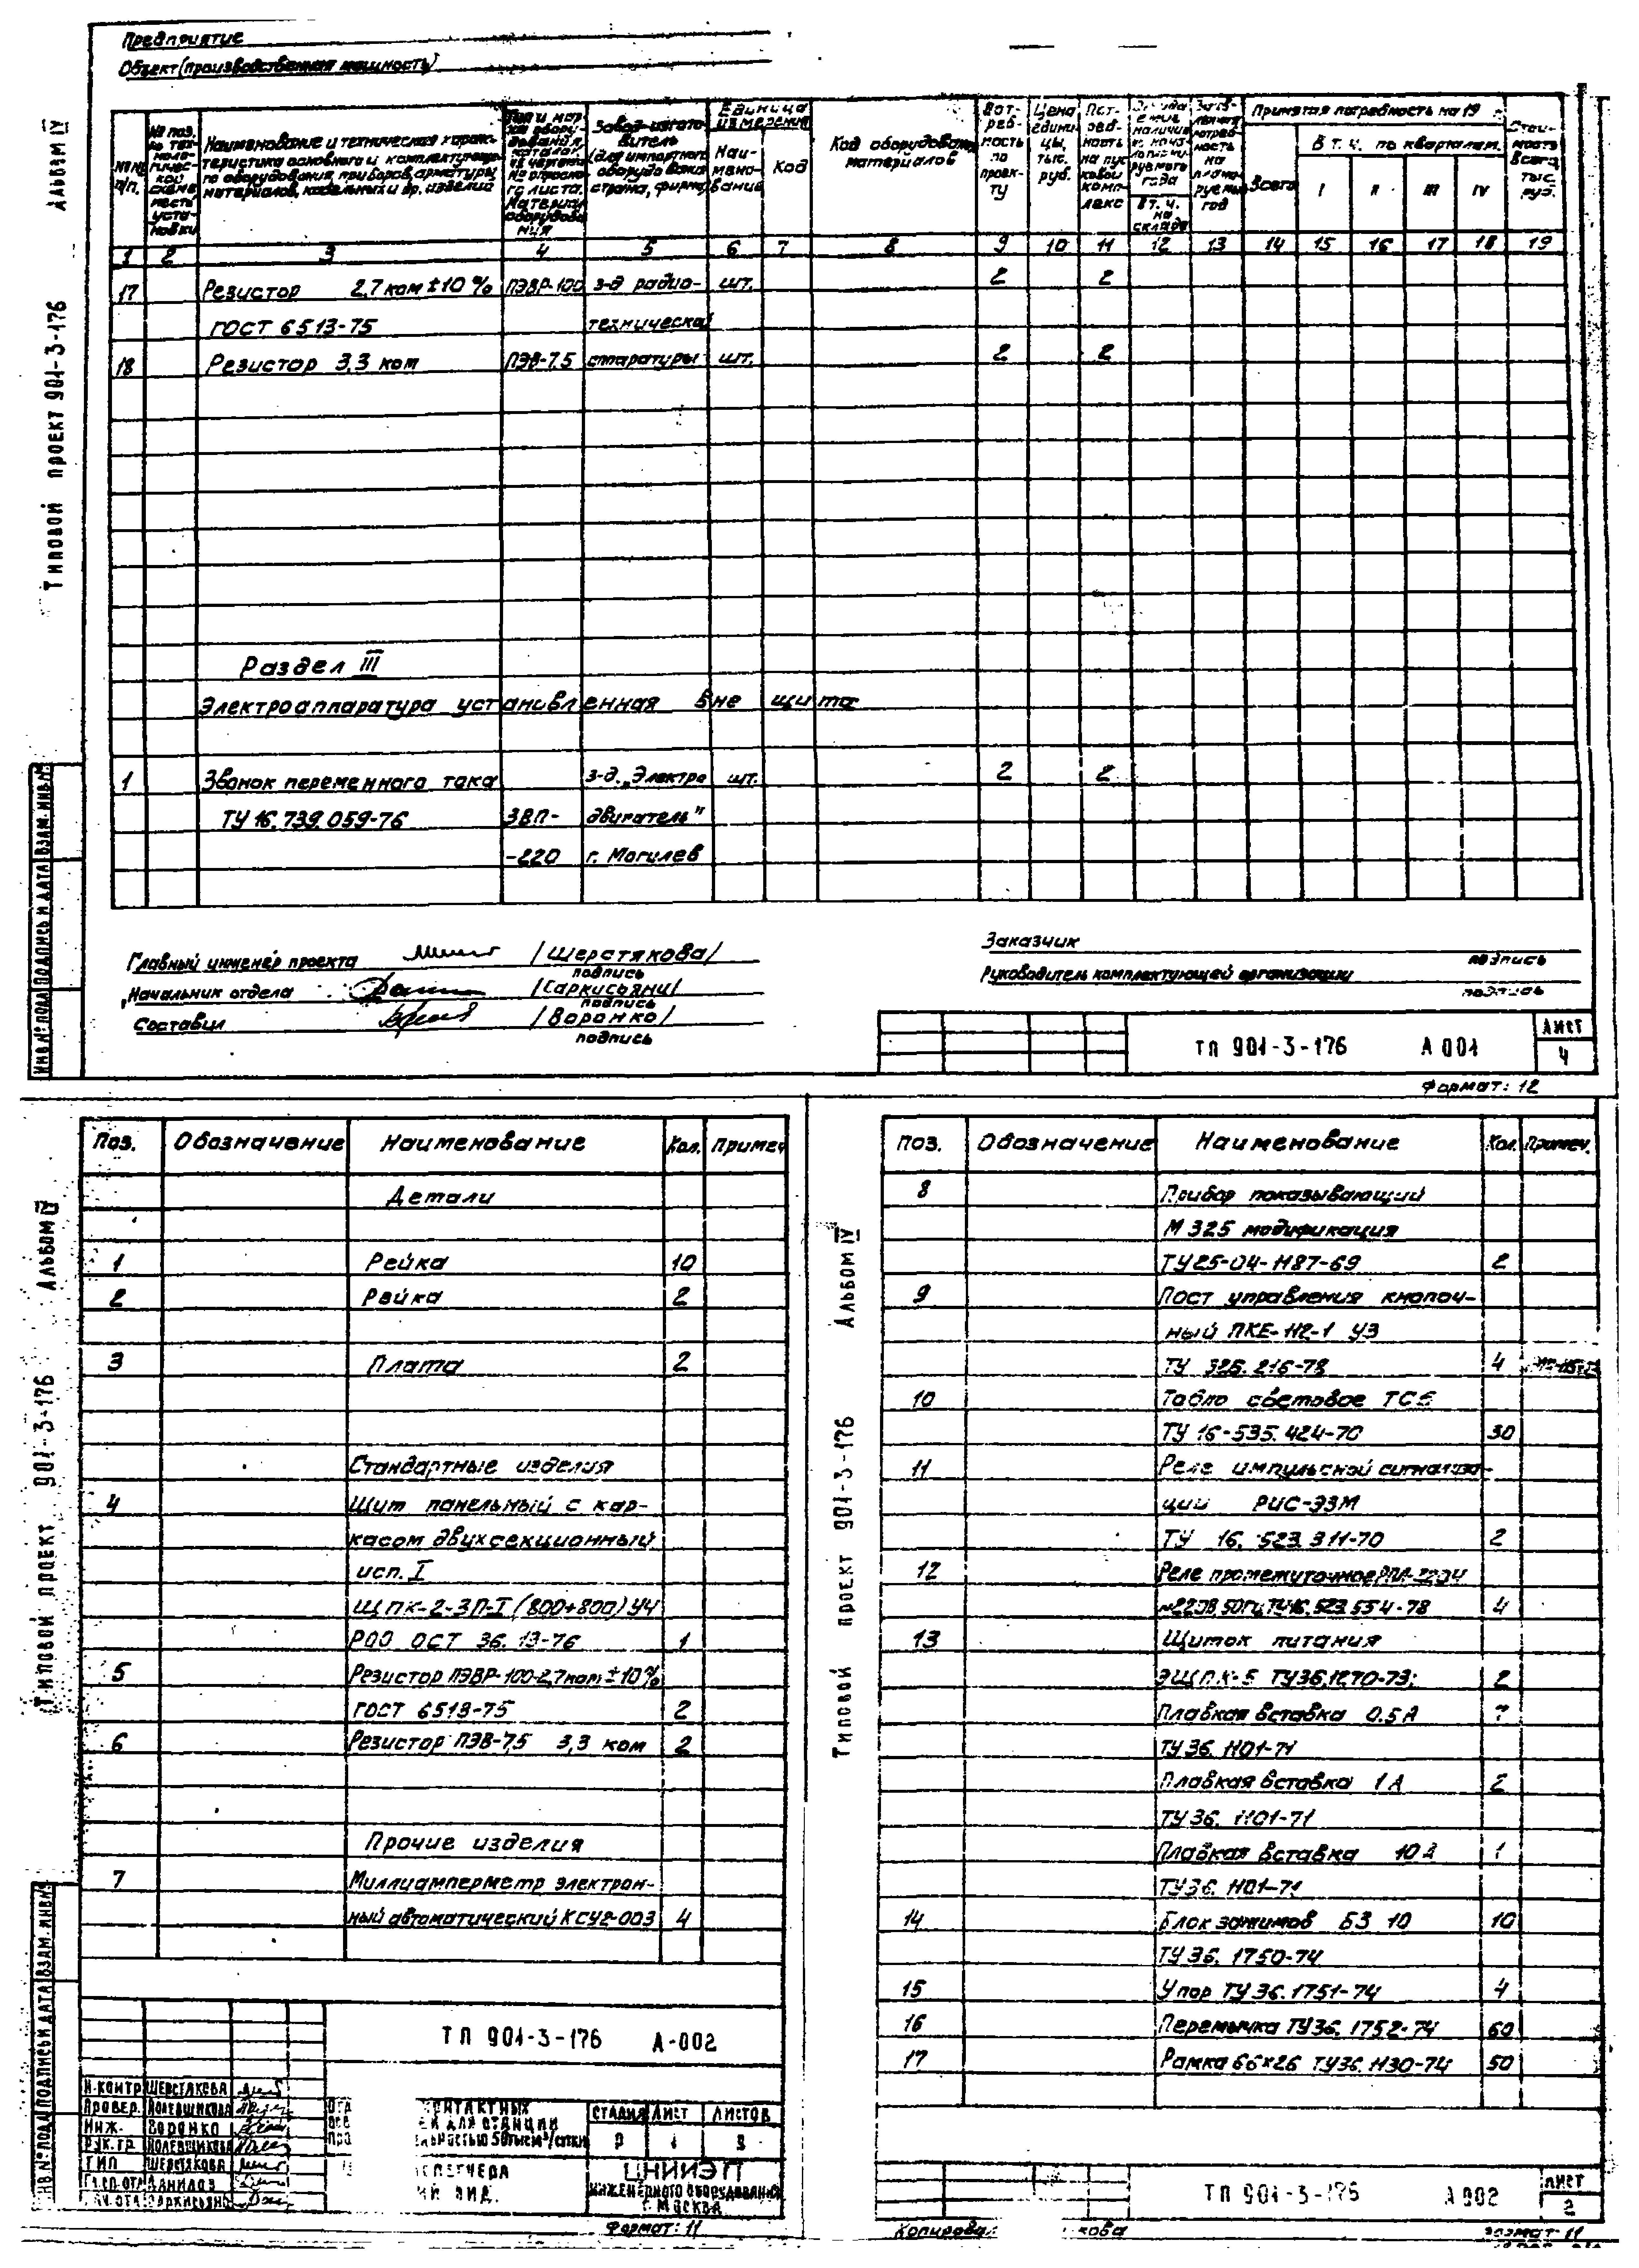 Предприятие
Объект (производственная мощность)
Альбом IV
Типовой проект 901-3-176
№№ п/п.
№ поз. по технологической схеме место установки
Наименование и техническая характеристика основного и комплектующего оборудования, приборов, арматуры материалов, кабельных и др. изделий
Тип и марка оборудования, каталог, № чертежа № опросного листа. Материал оборудования
Завод-изготовитель (для импортного оборудования страна, фирма)
Единица измерения
Наименование
Код
Код оборудования, материалов
Потребность по проекту
Цена единицы, тыс. руб.
Потребность на пусковой комплекс
В т. ч. на складе
Принятая потребность на 19
Всего
В т. ч. по кварталам.
I II III IV
Стоимость всего, тыс. руб.
1 2 3 4 5 6 7 8 9 10 11 12 13 14 15 16 17 18 19
17 Резистор 2,7 ком ±10 % ПЭВР-100 з-д радио- шт. 2 2
ГОСТ 6513-75 техническа
18 Резистор 3,3 ком ПЭВ-7,5 аппаратуры шт. 2 2
Раздел III
Электроаппаратура установленная вне щита
1 Звонок переменного тока з-д. „Электро шт. 2 2
ТУ 16.739.059-76 ЗВП- двигатель"
-220 г. Могилев
Главный инженер проекта /Шерстякова/
подпись
Начальник отдела /Саркисьянц/
подпись
Составил /Воронко/
подпись
Заказчик
подпись
Руководитель комплектующей организации
подпись
ТП 901-3-176 А 001
Лист
4
Формат: 12
Инв № подл Подпись и дата Взам. инв №
Альбом IV
Типовой проект 901-3-176
Поз. Обозначение Наименование Кол. Примеч
Детали
1 Рейка 10
2 Рейка 2
3 Плата 2
Стандартные изделия
4 Щит панельный с кар-
касом двухсекционный
исп. I
ЩПК-2-ЗП-I (800+800) У4
Р00 ОСТ 36.13-76 1
5 Резистор ПЭВР-100-2,7ком ±10%
ГОСТ 6513-75 2
6 Резистор ПЭВ-7,5 3,3 ком 2
Прочие изделия
7 Миллиамперметр электрон-
ный автоматический КСУ2-003 4
ТП 901-3-176 А-002
Н.контр Шерстякова
Провер. Полевщикова
Инж. Воронко
Рук. гр. Полевщикова
ГИП Шерстякова
Гл.сп.отд Данилов
Нач.отд Саркисьянц
Стадия Лист Листов
Р 1 3
ЦНИИЭП
инженерного оборудования
г. Москва
Формат: 11
Инв № подл Подпись и дата Взам. инв №
Альбом IV
Типовой проект 901-3-176
Поз. Обозначение Наименование Кол. Примеч.
8 Прибор показывающий
М 325 модификация
ТУ25-04-1187-69 2
9 Пост управления кнопоч-
ный ПКЕ-112-1 У3
ТУ 326.216-78 4
10 Табло световое ТСБ
ТУ 16-535.424-70 30
11 Реле импульсной сигнализа-
ции РИС-Э3М
ТУ 16.523.311-70 2
12 Реле промежуточное
~220В, 50Гц ТУ16.523.554-78 4
13 Щиток питания
ЭЩПК-5 ТУ36.1270-73; 2
Плавкая вставка 0.5А
ТУ36.1101-71
Плавкая вставка 1А 2
ТУ36.1101-71
Плавкая вставка 10А 1
ТУ36.1101-71
14 Блок зажимов БЗ 10 10
ТУ36.1750-74
15 Упор ТУ36.1751-74 4
16 Перемычка ТУ36.1752-74 60
17 Рамка 66×26 ТУ36.1130-74 50
ТП 901-3-176 А 002
Лист
2
Копировал
Формат 11